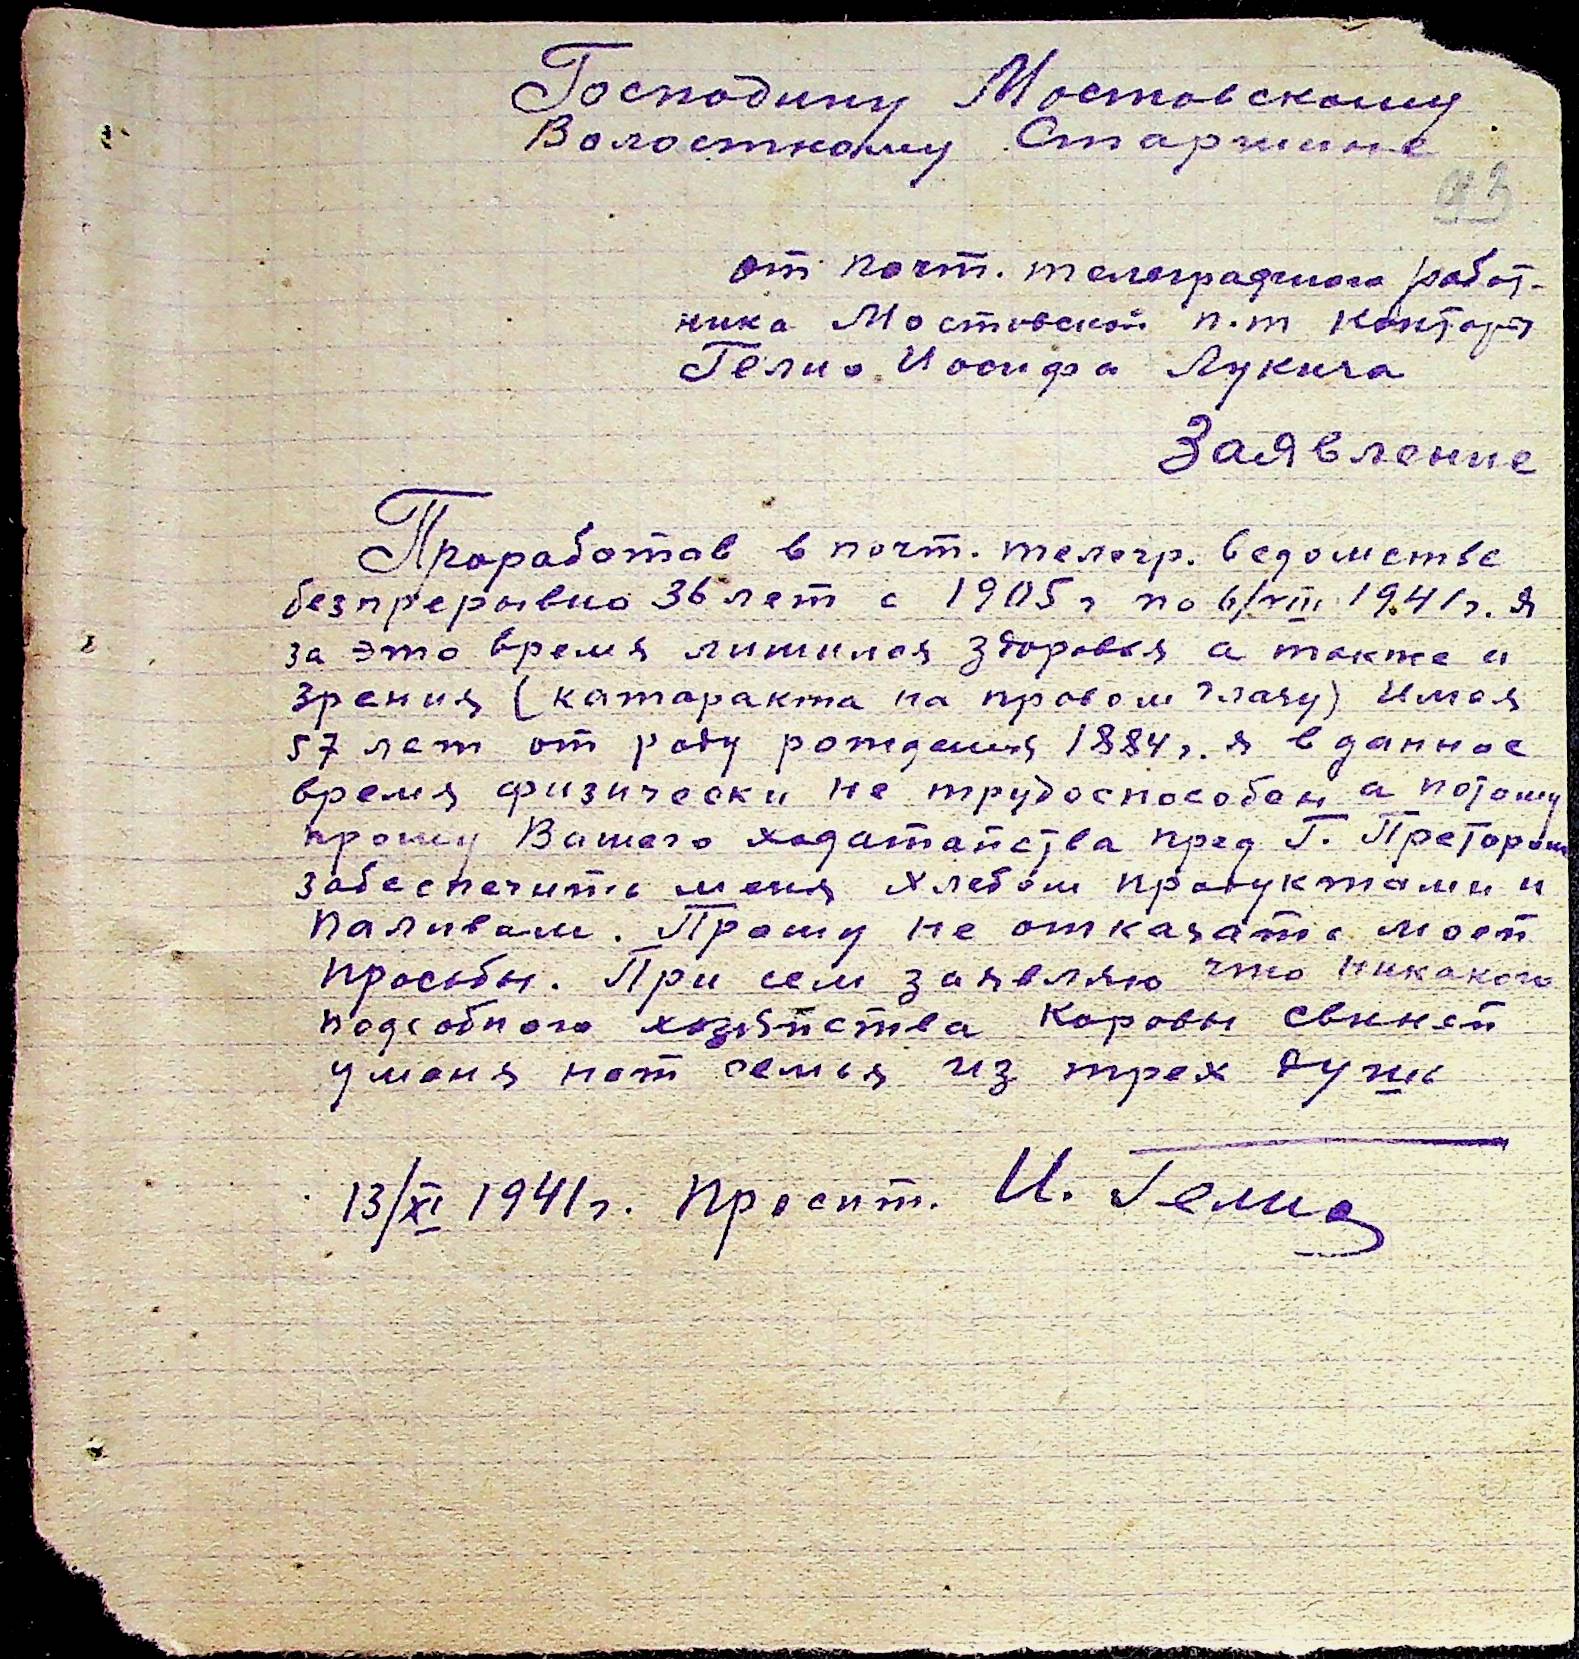 Господину Мостовскому
Волостному Старшине
43
от почт. телеграфного работ-
ника Мостовской п.т конторы
Гелио Иосифа Лукича
Заявление
Проработав в почт. телегр. ведомстве
безпрерывно 36 лет с 1905 г по 6/VIII 1941 г. я
за это время лишился здоровья а также и
зрения (катаракта на правом глазу) Имея
57 лет от роду рождения 1884 г. я в данное
время физически не трудоспособен а потому
прошу Вашего ходатайства пред Г. Претором
забеспечить меня хлебом продуктами и
паливом. Прошу не отказать моей
просьбы. При сем заявляю что никакого
подсобного хозяйства Коровы свиней
у меня нет семья из трех душь
13/XI 1941 г. Просит. И. Гелио